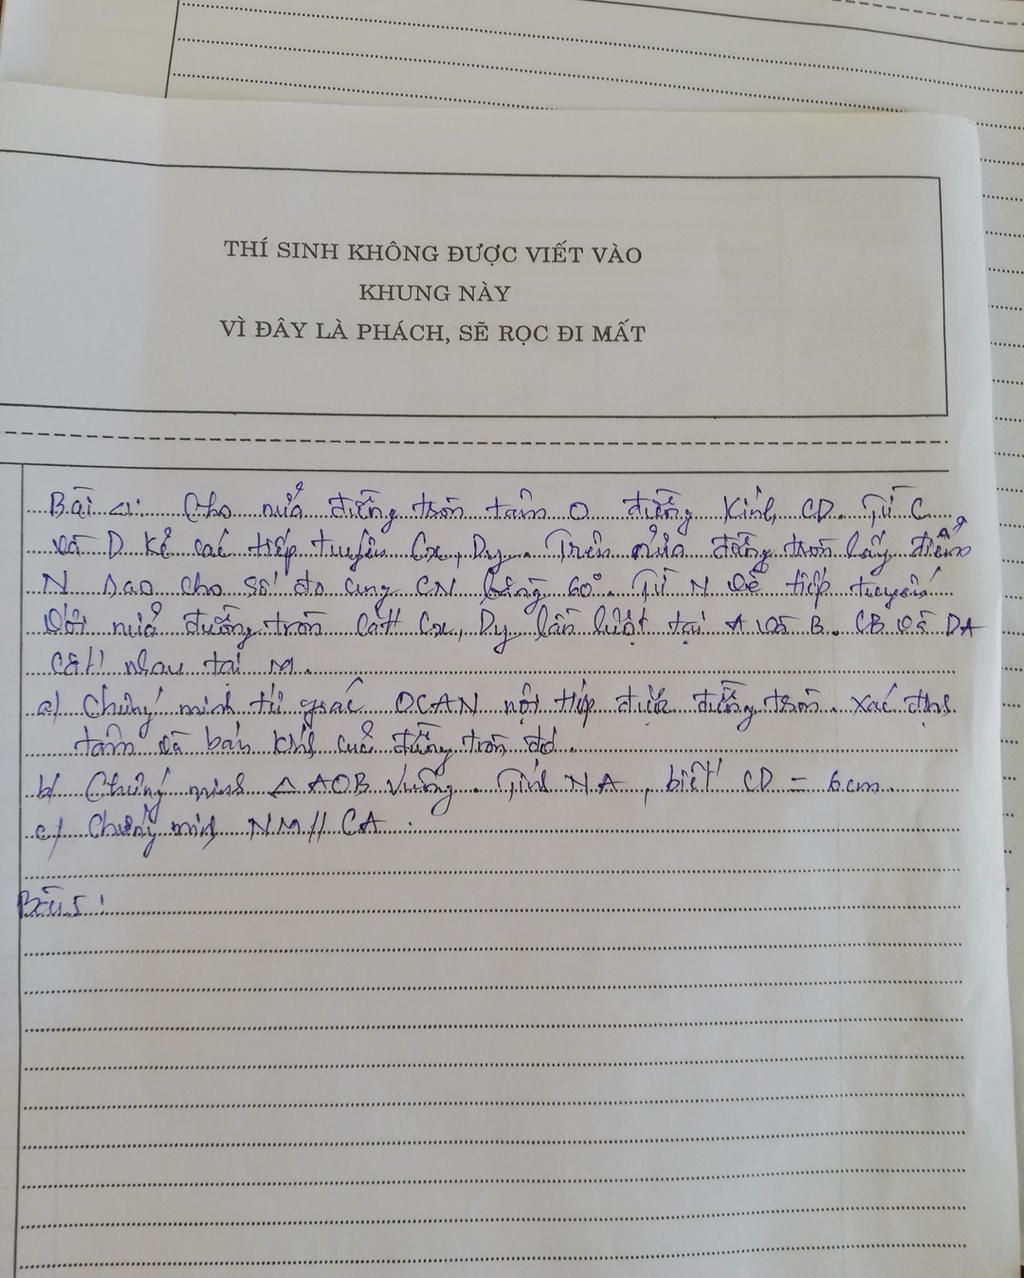 THÍ SINH KHÔNG ĐƯỢC VIẾT VÀO
KHUNG NÀY
VÌ ĐÂY LÀ PHÁCH, SẼ RỌC ĐI MẤT
Bài 4: Cho nửa đường tròn tâm O đường kính CD. Từ C
và D kẻ các tiếp tuyến Cx, Dy. Trên nửa đường tròn lấy điểm
N sao cho số đo cung CN bằng 60°. Từ N vẽ tiếp tuyến
với nửa đường tròn cắt Cx, Dy lần lượt tại A và B. CB và DA
cắt nhau tại M.
a) Chứng minh tứ giác OCAN nội tiếp được đường tròn. Xác định
tâm và bán kính của đường tròn đó.
b) Chứng minh △AOB vuông. Tính NA, biết CD = 6cm
c) Chứng minh NM // CA.
Bài 5: